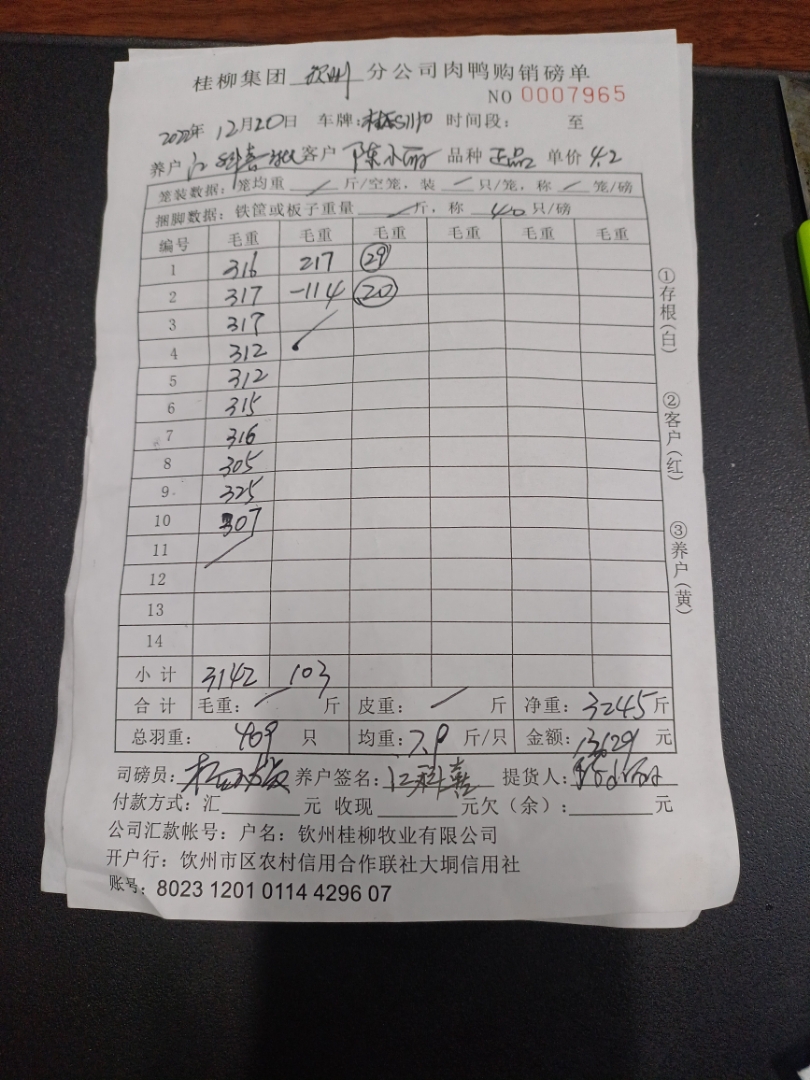 桂柳集团 钦州 分公司肉鸭购销磅单
NO 0007965
2022年 12月20日 车牌: 时间段: 至
养户 江科喜 客户 陈小丽 品种 正品 单价 4.2
笼装数据: 笼均重 / 斤/空笼, 装 / 只/笼, 称 / 笼/磅
捆脚数据: 铁筐或板子重量 / 斤, 称 40 只/磅
编号 毛重 毛重 毛重 毛重 毛重 毛重
1 316 217 29
2 317 -114 20
3 317
4 312
5 312
6 315
7 316
8 305
9 325
10 307
11
12
13
14
小计 3142 103
合计 毛重: / 斤 皮重: / 斤 净重: 3245斤
总羽重: 409 只 均重: 7.9 斤/只 金额: 13629 元
司磅员: 养户签名: 江科喜 提货人: 陈小丽
付款方式: 汇 元 收现 元欠(余): 元
公司汇款帐号: 户名: 钦州桂柳牧业有限公司
开户行: 饮州市区农村信用合作联社大垌信用社
账号: 8023 1201 0114 4296 07
①存根(白)
②客户(红)
③养户(黄)